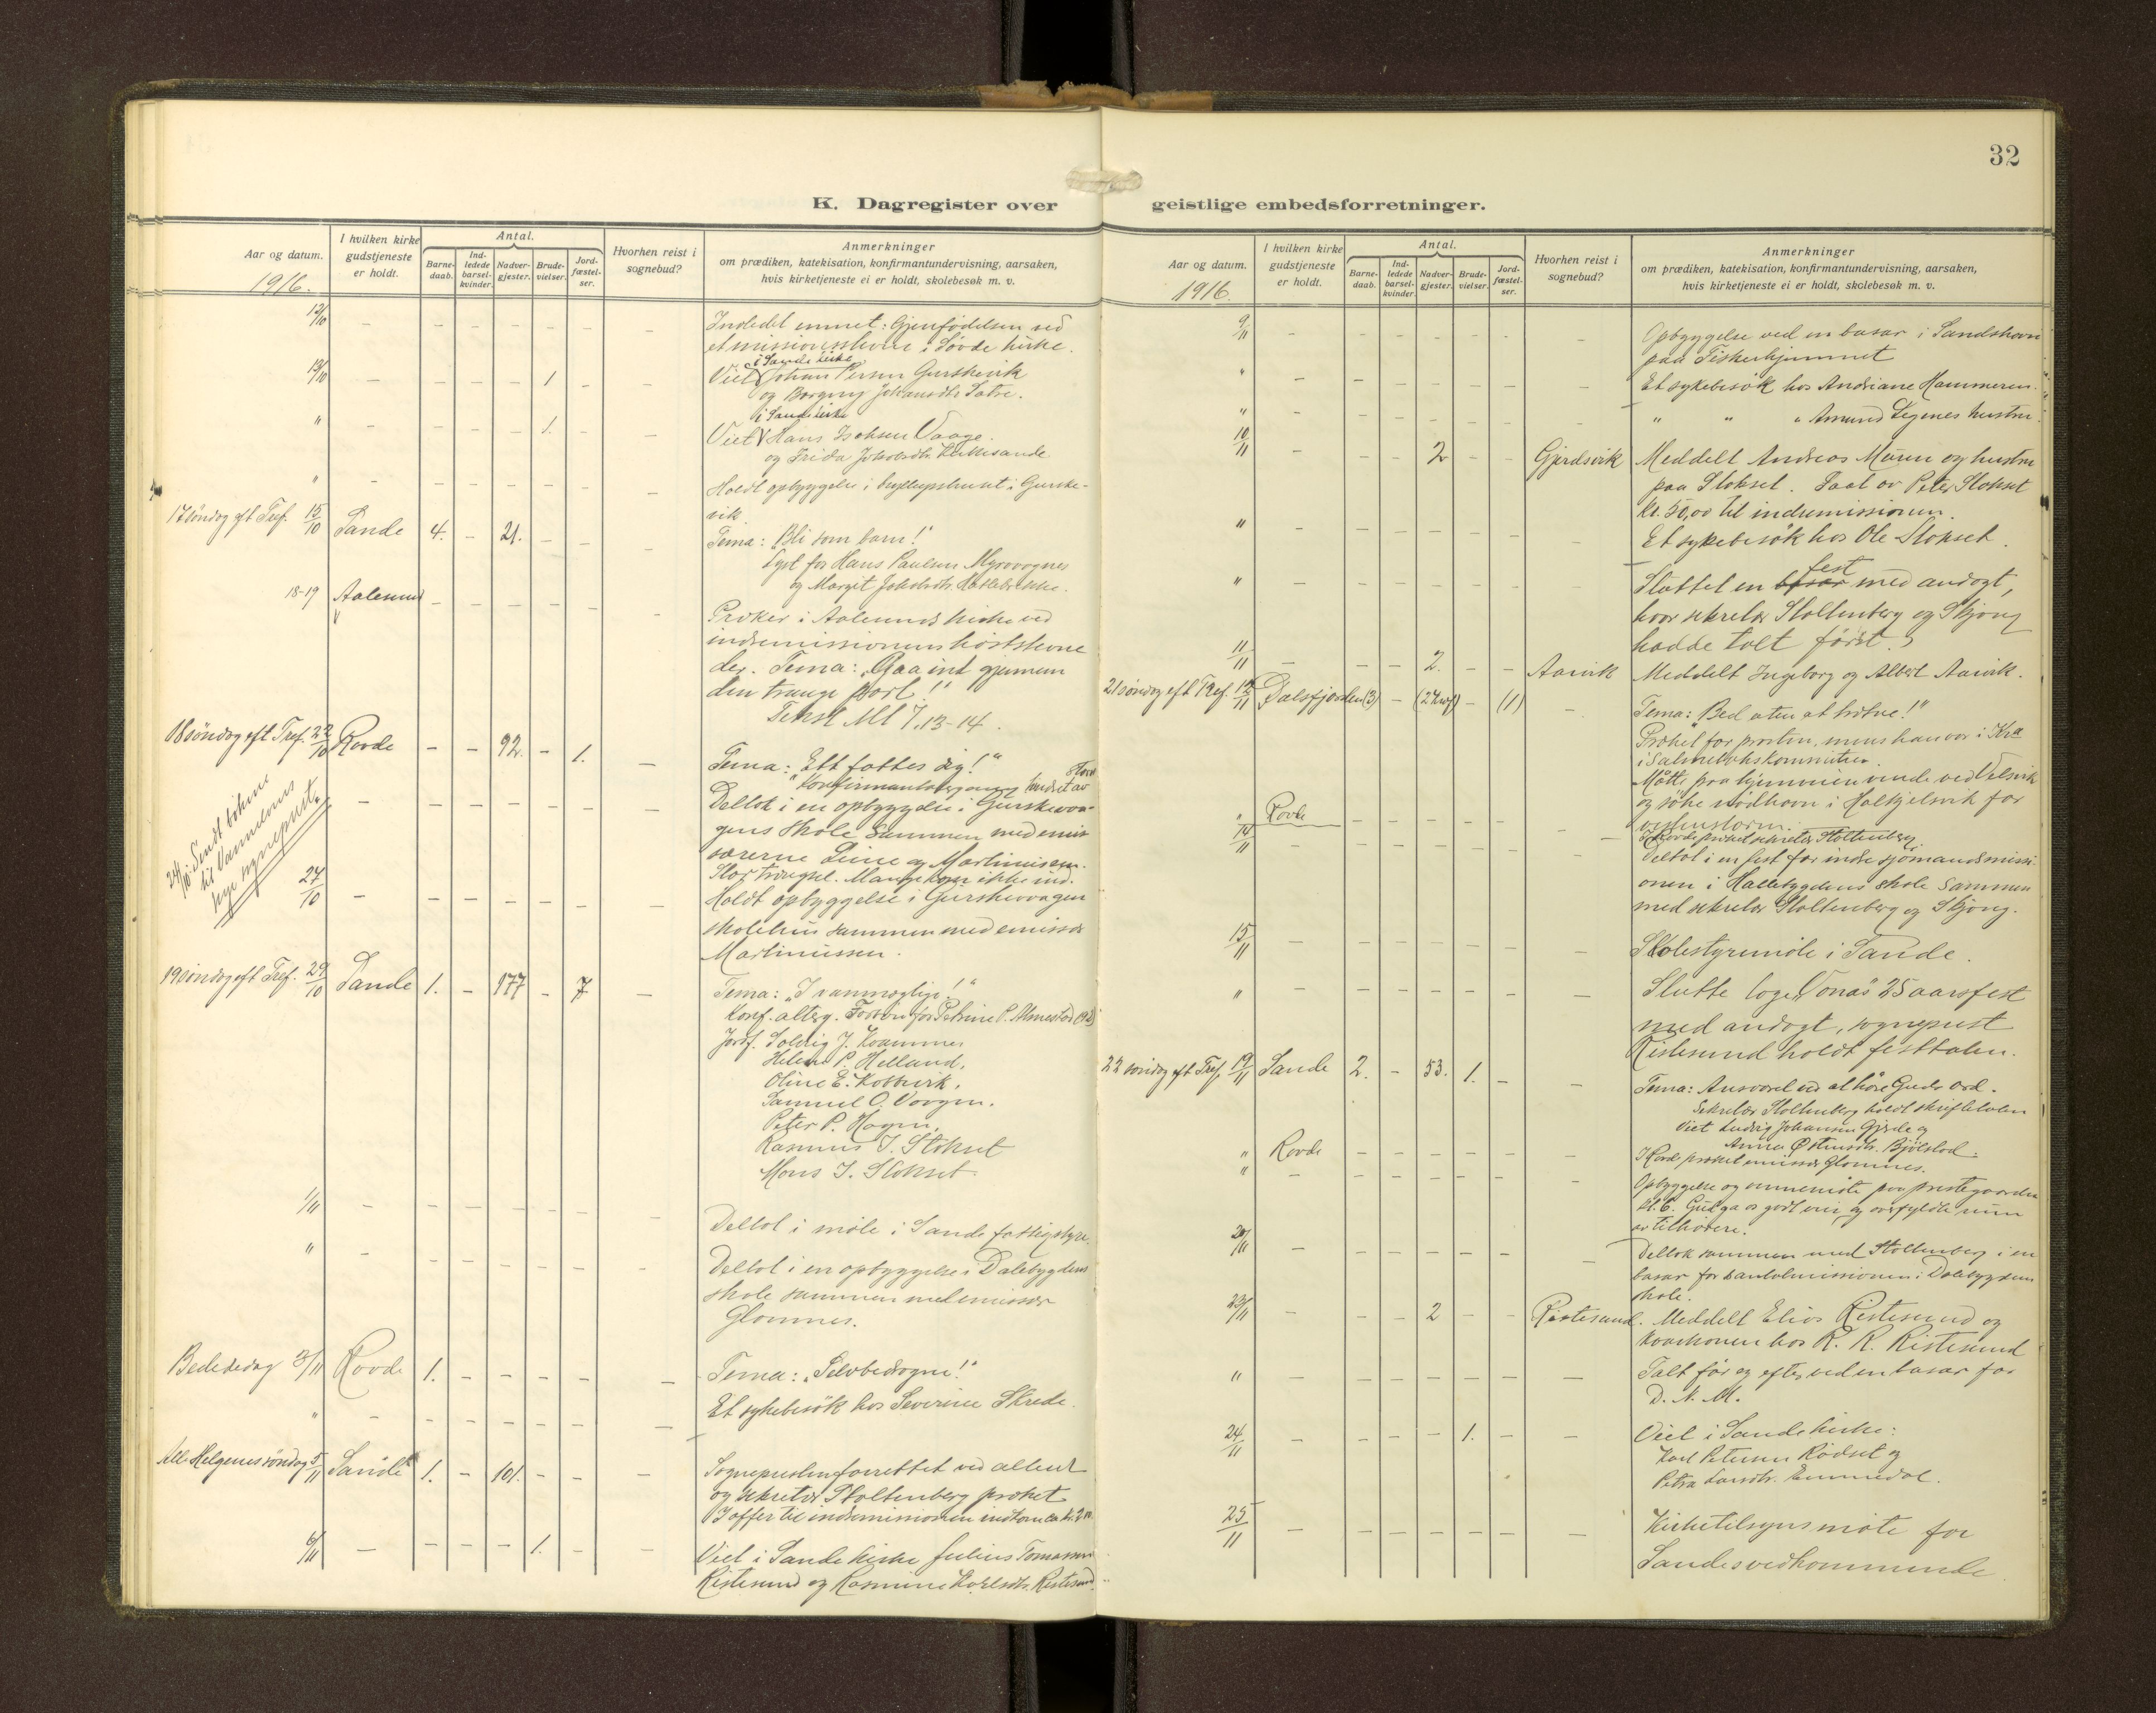 32
K. Dagregister over geistlige embedsforretninger.
Aar og datum.
1916.
I hvilken kirke gudstjeneste er holdt.
Antal.
Barnedaab.
Indledede barselkvinder.
Nadvergjester.
Brudevielser.
Jordfæstelser.
Hvorhen reist i sognebud?
Anmerkninger
om prædiken, katekisation, konfirmantundervisning, aarsaken,
hvis kirketjeneste ei er holdt, skolebesøk m. v.
Indledet emnet: Gjenfødelsen ved
et missionsstevne i Søvde kirke.
i Sande kirke
Viet Johan Persen Gurskevik 1
og Borgny Johansdtr. Sætre.
i Sande kirke
" 1. Viet Hans Isaksen Vaage
og Frida Jakobsdtr. Kirkesande
" Holdt opbyggelse i bryllupshuset i Gurske-
vik.
17 søndag eft Tref. 15/10 Sande 4. – 21. – – – Tema: "Bli som barn!"
Lyst for Hans Paulsen Myrvognes
og Margit Jakobsdtr.
18-19 Aalesund Præket i Aalesunds kirke ved
indremissionens höststevne
der. Tema: "Gaa ind gjennem
den trange port!"
Tekst Mt 7,13-14.
18 søndag eft Tref. 22/10 Rovde – – 92. – 1. – Tema: "Ett fattes dig!"
Konfirmantaltergang
Deltok i en opbyggelse i Gurskevaa-
gens skole sammen med emis-
særerne Leine og Martinussen.
Stor trængsel. Mange kom ikke ind.
24/10 Sendt bøkene
til Vanelvens
nye sogneprest.
27/10 – Holdt opbyggelse i Gurskevaagen
skolehus sammen med emissær
Martinussen.
19 søndag eft Tref. 29/10 Sande 1. – 177 – 7 – Tema: "I vanmægtige!"
Konf. alterg. Forbøn for Petrine P. Almestad (92)
Jordf. Solveig J. Kvammen
Helene P. Helland,
Oline E. Kobbevik,
Samuel O. Vaagen.
Peter P. Hagen,
Rasmus J. Stokset
Mons J. Stokset
1/11 – Deltok i møte i Sande fattigstyre.
" – Deltok i en opbyggelse i Dalebygdens
skole sammen med emissær
Glomnes.
Bededag 3/11 Rovde 1. – – – – – Tema: "Selvbedragne!"
" – Et sykebesök hos Severine Skrede.
Alle Helgenes söndag 5/11 Sande 1. – 101. – – – Sognepresten forrettet ved alteret
og sekretær Stoltenberg præket
I offer til indremissionen indkom ca kr.
6/11 – 1. Viet i Sande kirke Julius Tomassen
Ristesund og Rasmine Karlsdtr. Ristesund.
Aar og datum.
1916.
I hvilken kirke gudstjeneste er holdt.
Antal.
Barnedaab.
Indledede barselkvinder.
Nadvergjester.
Brudevielser.
Jordfæstelser.
Hvorhen reist i sognebud?
Anmerkninger
om prædiken, katekisation, konfirmantundervisning, aarsaken,
hvis kirketjeneste ei er holdt, skolebesøk m. v.
9/11 – Opbyggelse ved en basar i Sandshavn
paa Fiskerhjemmet
" – Et sykebesök hos Andriane Hammeren.
" – " " " Amund Legenes hustru.
10/11 – 2 Gjerdsvik Meddelt Andreas Mauren og hustru
paa Stokset. Faat av Peter Stokset
kr. 50,00 til indremissionen.
" – Et sykebesök hos Ole Stokset.
" – Sluttet en basar fest med andagt,
hvor sekretær Stoltenberg og Skjong
hadde talt först.
11/11 – 2. Aarvik Meddelt Ingeborg og Albert Aarvik.
21 söndag eft Tref. 12/11 Dalsfjorden (3) – – (1) – Tema: "Bed uten at trætne!"
Præket for prosten, mens han var i Kra
i Salmebokskommiteen.
Maatte paa hjemveien vende ved Velsvik
og söke nödhavn i Halkjelsvik for
" Rovde I Rovde præket sekretær Stoltenberg
14/11 Deltok i en fest for indre sjömandsmissi-
onen i Hallebygdens skole sammen
med sekretær Stoltenberg og Skjong.
15/11 – Skolestyremöte i Sande.
" – Slutte loge "Vonas" 25 aarsfest
med andagt, sogneprest
Ristesund holdt festtalen.
22 söndag eft Tref. 19/11 Sande 2. – 53. 1. – – Tema: Ansvaret ved at høre Guds ord.
Sekretær Stoltenberg holdt skriftetalen
Viet Ludvig Johansen Gjerde og
Anna Bjölstad.
" Rovde I Rovde præket emissær Glomnes.
" – Opbyggelse og emnemöte paa prestegaarden
kl. 6. Gud ga os godt veir og overfyldte rum
av tilhørere.
20/11 – Deltok sammen med Stoltenberg i en
basar for Santalmissionen i Dalebygdens
skole.
23/11 – 2 Ristesund. Meddelt Elias Ristesund og
kaarkonen hos R. R. Ristesund
" – Talt för og efter ved en basar for
D. N. M.
24/11 – 1. Viet i Sande kirke:
Karl Petersen Rødset og
Petra Larsdtr.
25/11 – Kirketilsynsmöte for
Sandes vedkommende